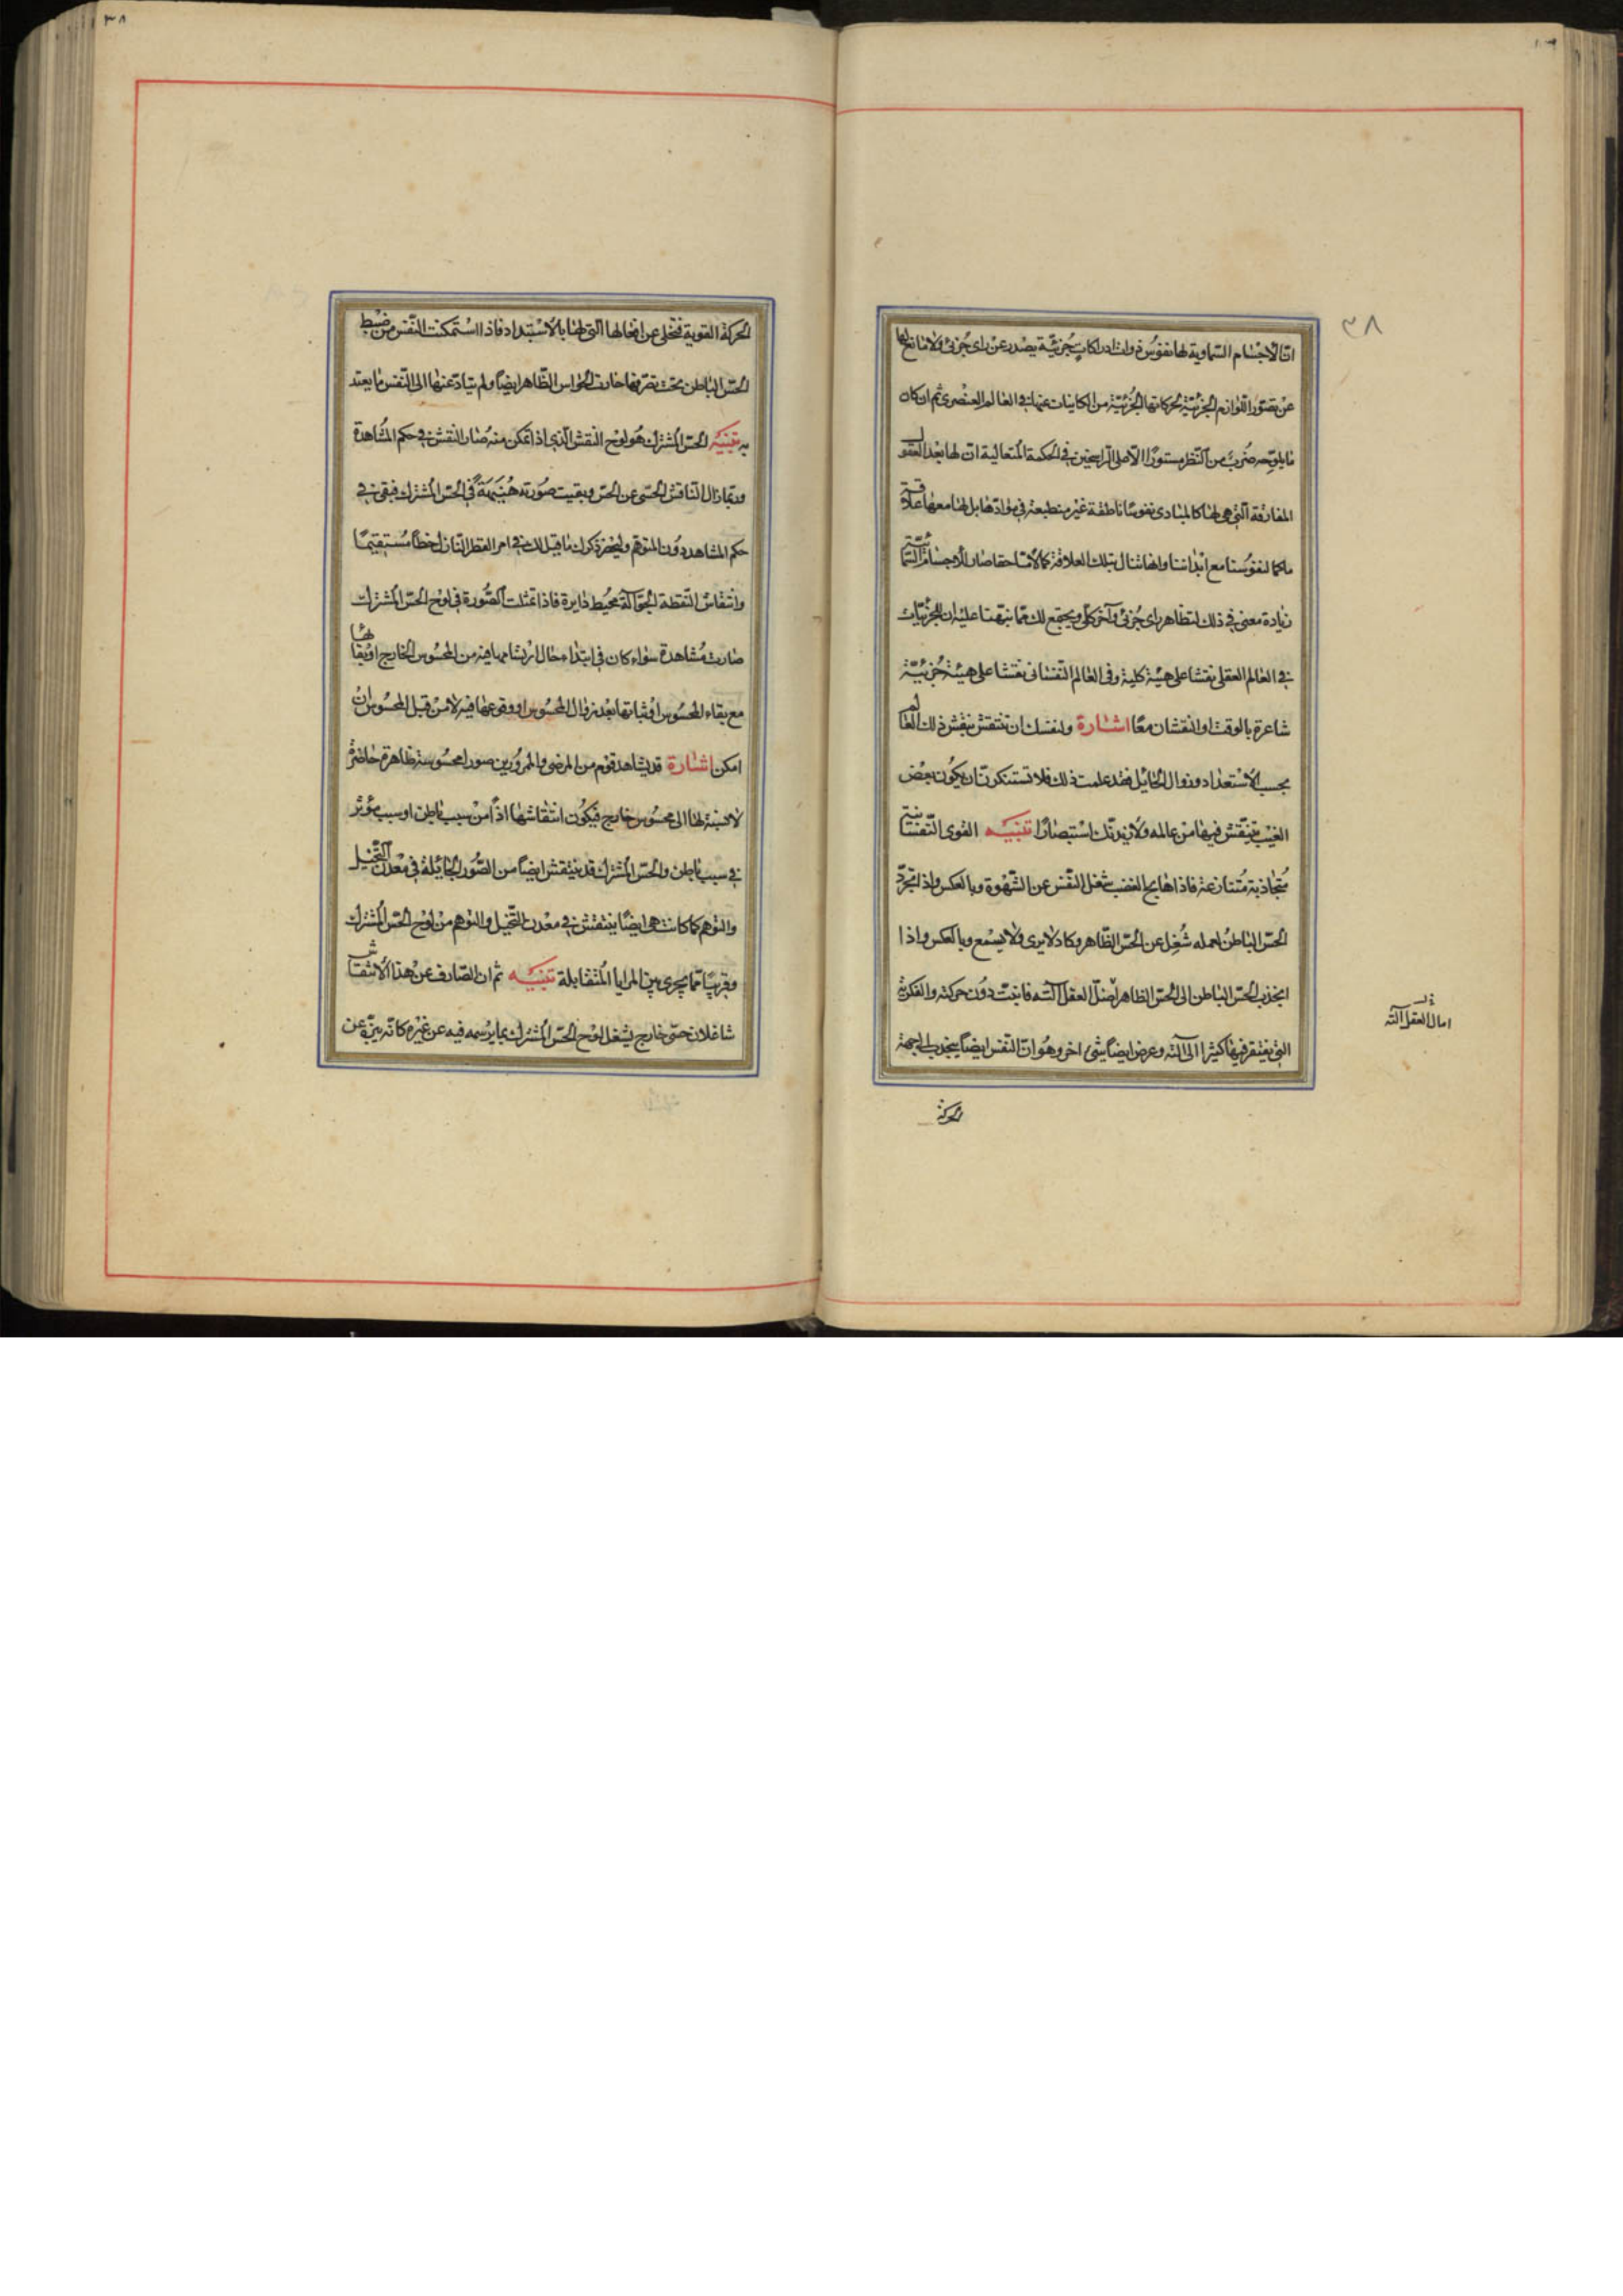 ٣٨
ان الاجسام السماوية لها نفوس ذوات ادراكات جزئية يصدر عن راى جزئى ولا مانع لها
عن تصور اللوازم الجزئية لحركاتها الجزئية من الكاينات عنها فى العالم العنصرى ثم ان كان
ما يلوحه ضرب من النظر مستورا الا على الراسخين فى الحكمة المتعالية ان لها بعد العقول
المفارقة التى هى لها كالمبادى نفوسا ناطقة غير منطبعة فى موادها بل لها معها علاقة
ما كما لنفوسنا مع ابداننا وانها تنال بتلك العلاقة كمالا ما حقا صار للاجسام السماوية
زيادة معنى فى ذلك لتظاهر راى جزئى وآخر كلى ويجتمع لك مما نبهنا عليه ان للجزئيات
فى العالم العقلى نقشا على هيئة كلية وفى العالم النفسانى نقشا على هيئة جزئية
شاعرة بالوقت او النقشان معا اشارة ولنفسك ان تنتقش بنقش ذلك العالم
بحسب الاستعداد وزوال الحايل فقد علمت ذلك فلا تستنكرن ان يكون بعض
الغيب ينتقش فيها من عالمه ولازيدنك استبصارا تنبيه القوى النفسانية
متجاذبة متنازعة فاذا هاج الغضب شغل النفس عن الشهوة وبالعكس واذا تجرد
الحس الباطن لعمله شغل عن الحس الظاهر وكاد لا يرى ولا يسمع وبالعكس واذا
انجذب الحس الباطن الى الحس الظاهر اضل العقل آلته فانبت دون حركته والفكرية
التى يفتقر فيها كثيرا الى آلته وعرض ايضا شئ اخر وهو ان النفس ايضا ينجذب الى جهة
امال العقل آلته
الحركة
٣٨
الحركة القوية فتخلى عن افعالها التى لها بالاستبداد فاذا استمكنت النفس من ضبط
الحس الباطن تحت تصرفها خارت الحواس الظاهر ايضا ولم يتاد عنها الى النفس ما يعتد
به تنبيه الحس المشترك هو لوح النقش الذى اذا تمكن منه صار النقش فى حكم المشاهدة
وربما زال الناقش الحسى عن الحس وبقيت صورته هنيهة فى الحس المشترك فبقى فى
حكم المشاهد دون المتوهم وليحضر ذكرك ما قيل لك فى امر القطر النازل خطا مستقيما
وانتقاش النقطة الجوالة محيط دايرة فاذا تمثلت الصورة فى لوح الحس المشترك
صارت مشاهدة سواء كان فى ابتداء حال ارتسامها فيه من المحسوس الخارج او بقائها
مع بقاء المحسوس او ثباتها بعد زوال المحسوس او وقوعها فيه لا من قبل المحسوس ان
امكن اشارة قد يشاهد قوم من المرضى والممرورين صورا محسوسة ظاهرة حاضرة
لا نسبة لها الى محسوس خارج فيكون انتقاشها اذا من سبب باطن او سبب مؤثر
فى سبب باطن والحس المشترك قد ينتقش ايضا من الصور الجايلة فى معدن التخيل
والتوهم كما كانت هى ايضا ينتقش فى معدن التخيل والتوهم من لوح الحس المشترك
وقريبا مما يجرى بين المرايا المتقابلة تنبيه ثم ان الصارف عن هذا الانتقاش
شاغلان حسى خارج يشغل لوح الحس المشترك بما يرسمه فيه عن غيره كانه يبزه عن